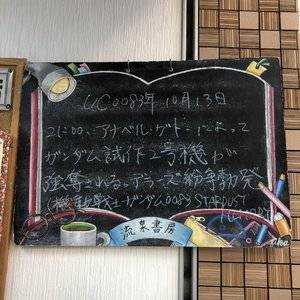 UC0083年10月13日
21:00、アナベル・ガトーによって
ガンダム試作2号機が
強奪される。デラーズ紛争勃発
(機動戦士ガンダム0083 STARDUST
MEMORY)
流泉書房